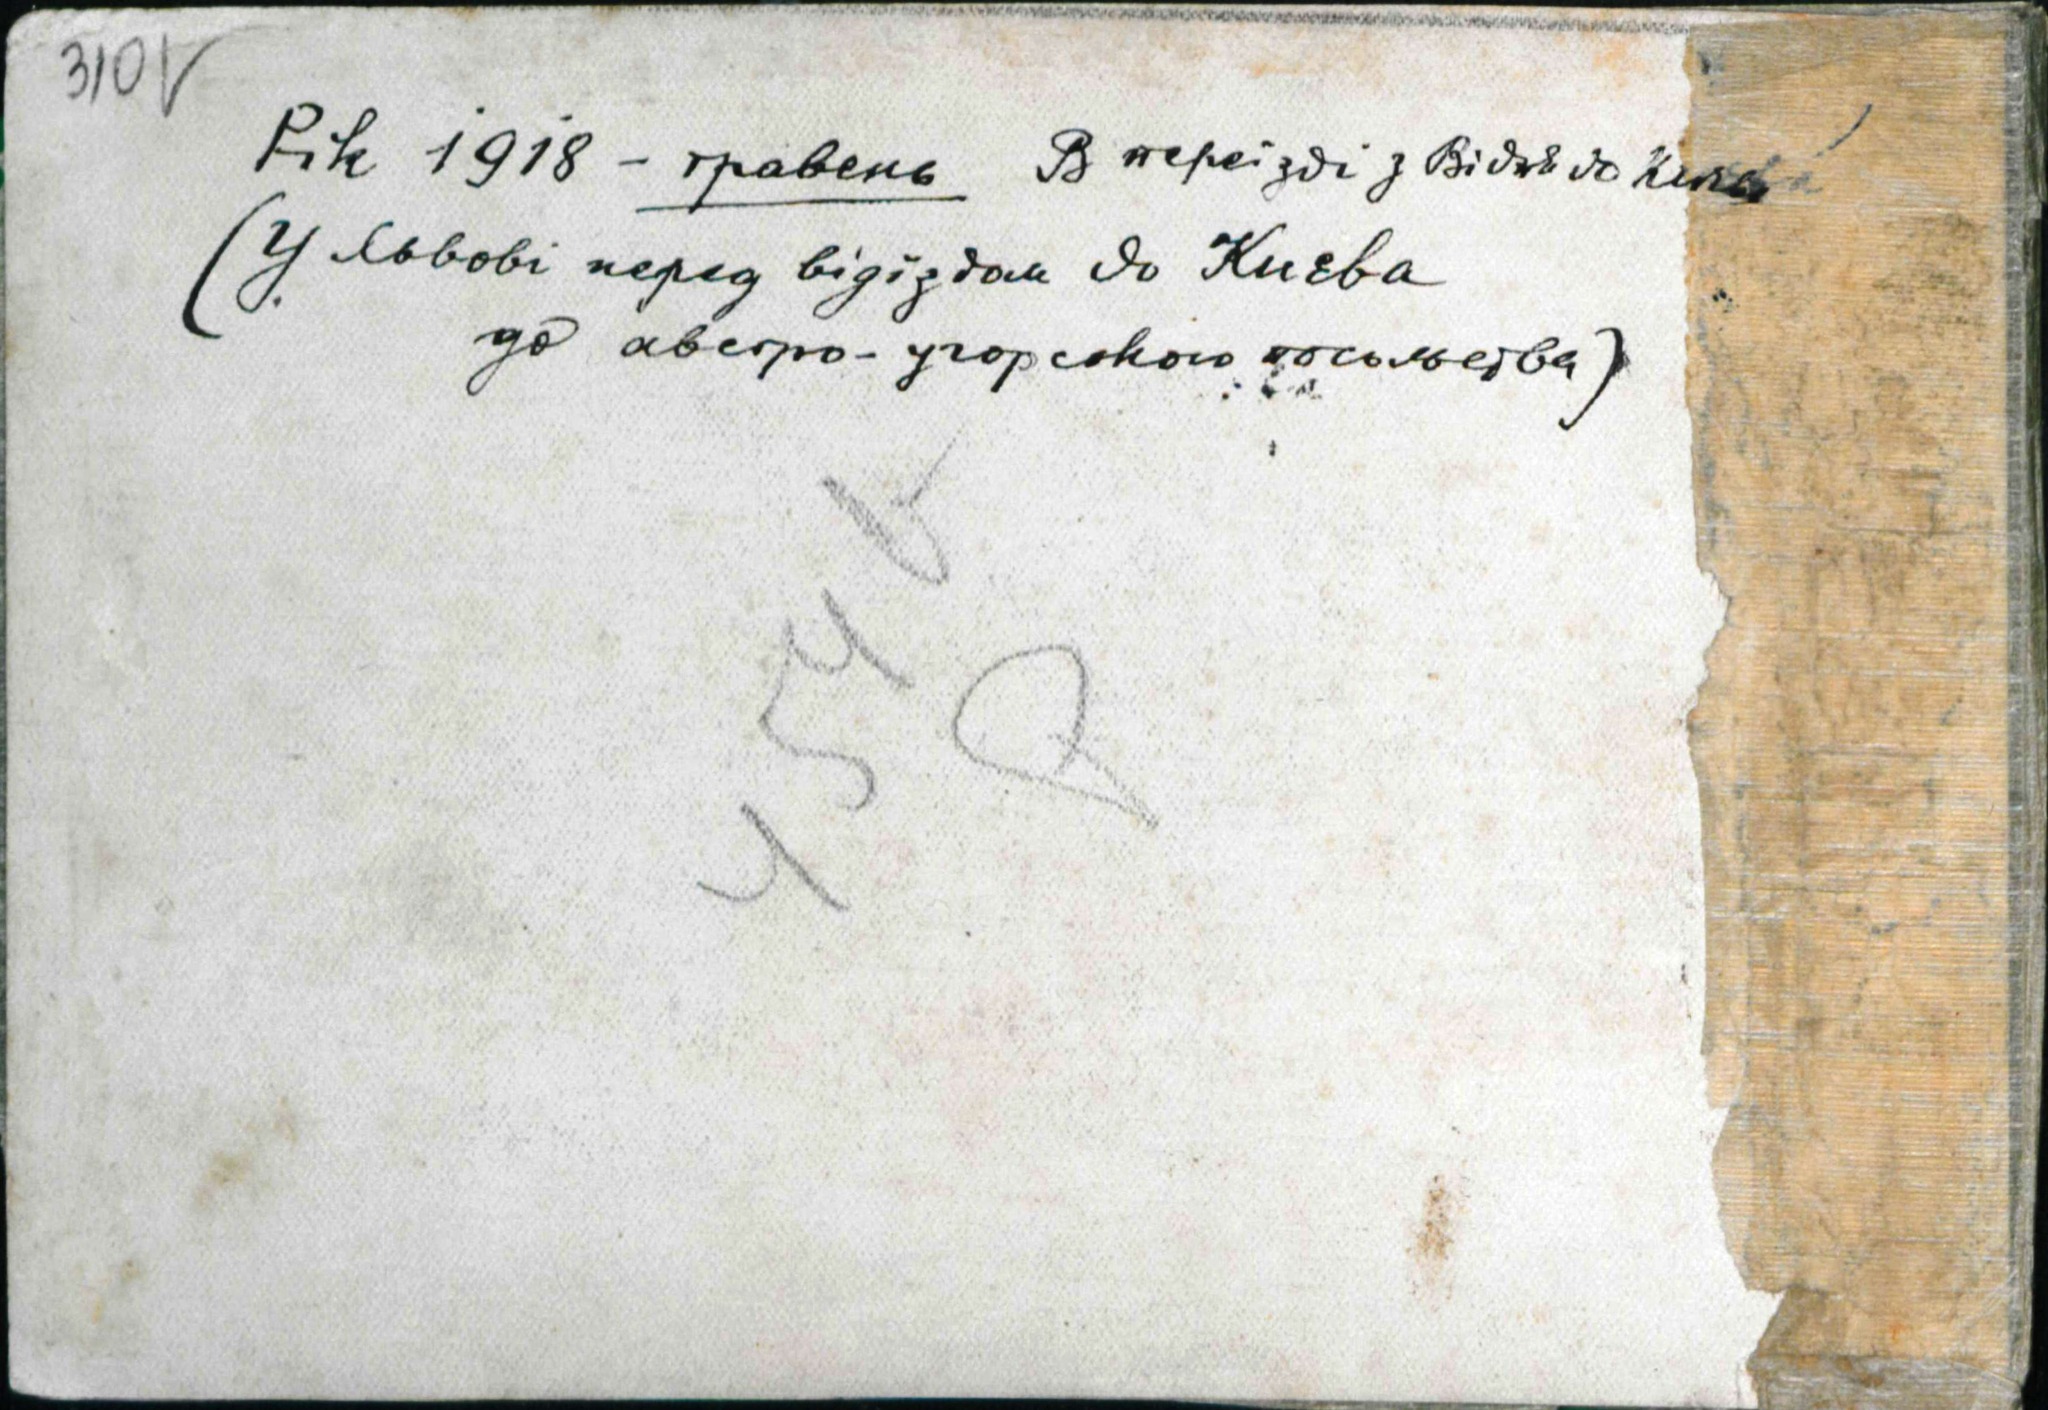 310V
Рік 1918 – травень В переїзді з Відня до Києва
(У Львові перед відїздом до Києва
до австро-угорського посольства)